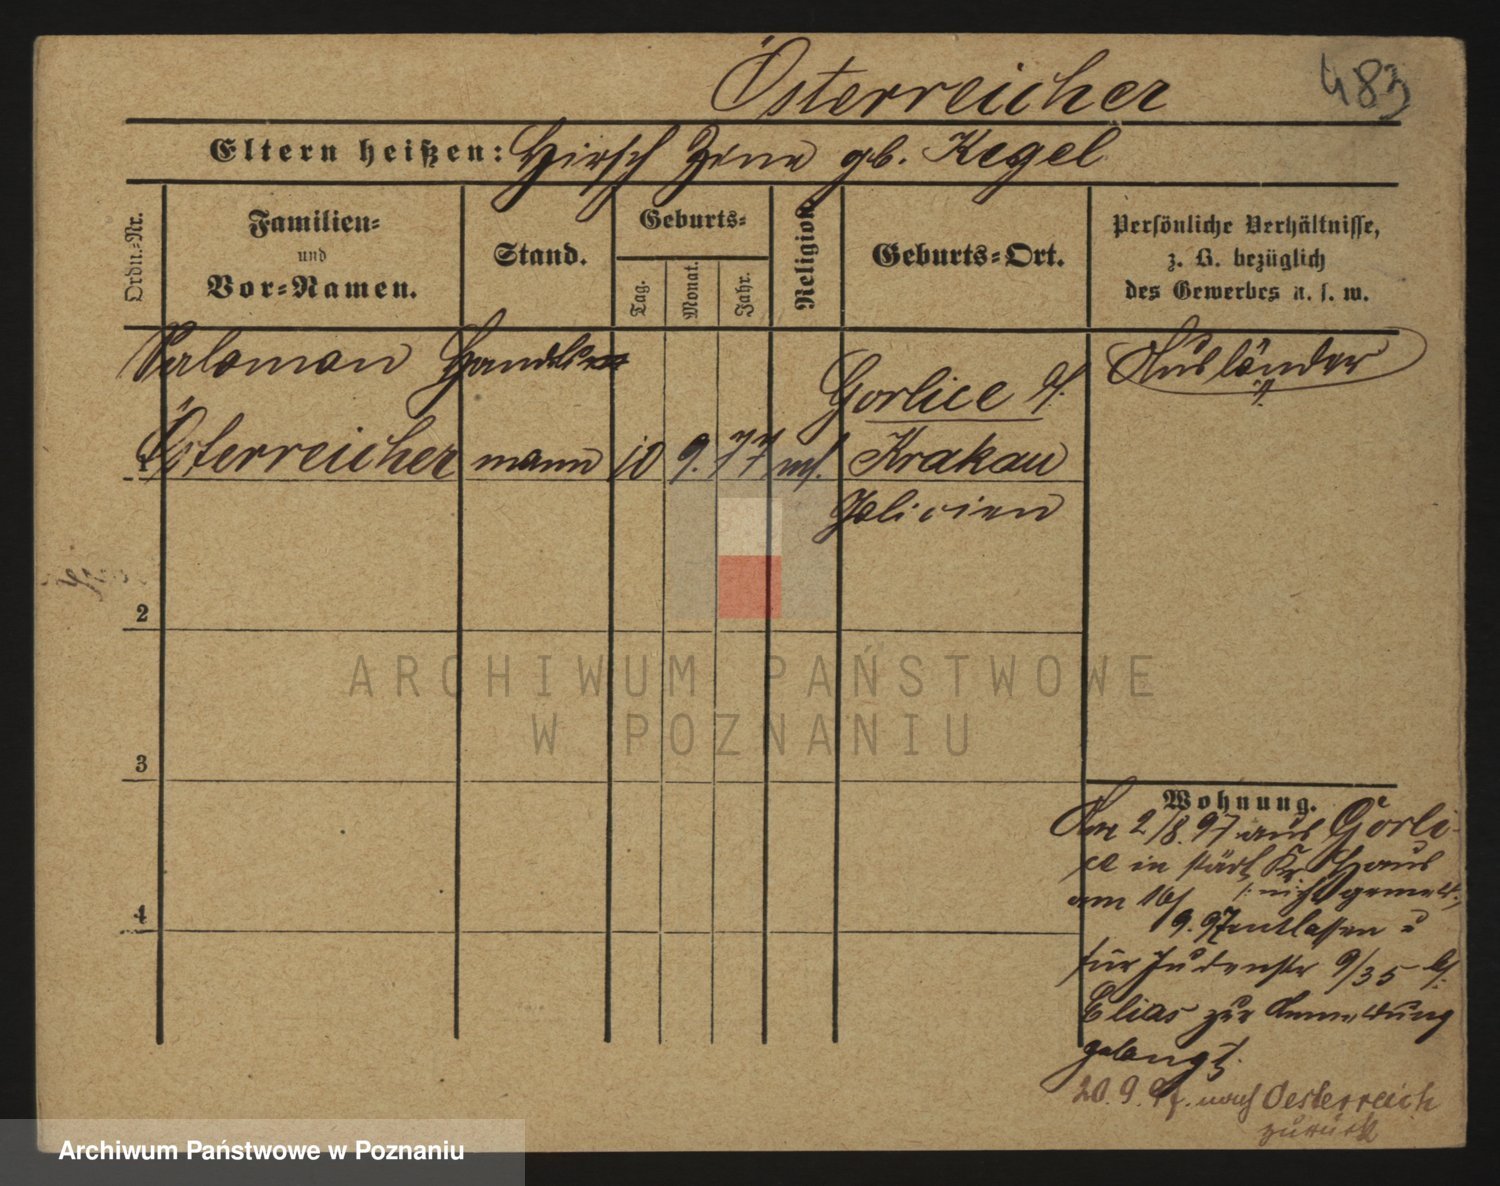 Österreicher
483
Eltern heißen: Hirsch Zine gb. Kegel
Ordn.-Nr.
Familien-
und
Vor-Namen.
Stand.
Geburts-
Tag.
Monat.
Jahr.
Religion.
Geburts-Ort.
Persönliche Verhältnisse,
z. B. bezüglich
des Gewerbes u. s. w.
Salomon
Österreicher
Handels
mann
10 9. 77
mos.
Gorlice b/.
Krakau
Galicien
Ausländer
1
2
3
4
Wohnung.
Am 2/8. 97 aus Görli-
ce in städt Kr Haus
am 16/ /: nicht gemeld. :/
9. 97 entlassen u
für Judenstr 9/35 b/.
Elias zur Anmeldung
gelangt.
20. 9. 97. nach Oesterreich
zurück
ARCHIWUM PAŃSTWOWE
W POZNANIU
Archiwum Państwowe w Poznaniu